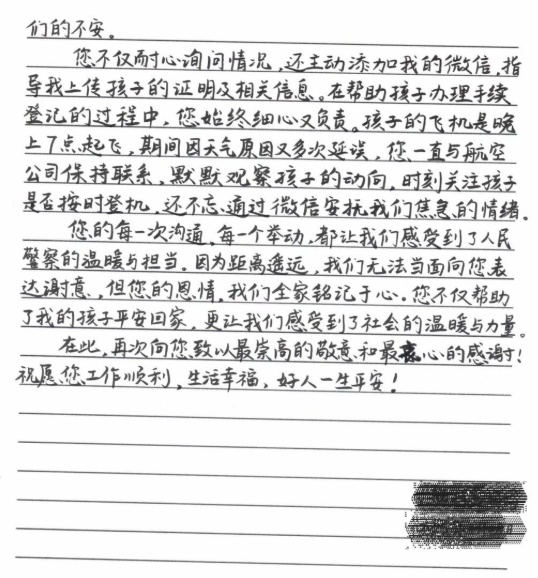 们的不安。
您不仅耐心询问情况，还主动添加我的微信，指
导我上传孩子的证明及相关信息。在帮助孩子办理手续
登记的过程中，您始终细心又负责。孩子的飞机是晚
上7点起飞，期间因天气原因又多次延误，您一直与航空
公司保持联系，默默观察孩子的动向，时刻关注孩子
是否按时登机，还不忘通过微信安抚我们焦急的情绪。
您的每一次沟通，每一个举动，都让我们感受到了人民
警察的温暖与担当。因为距离遥远，我们无法当面向您表
达谢意，但您的恩情，我们全家铭记于心。您不仅帮助
了我的孩子平安回家，更让我们感受到了社会的温暖与力量。
在此，再次向您致以最崇高的敬意和最衷心的感谢！
祝愿您工作顺利，生活幸福，好人一生平安！